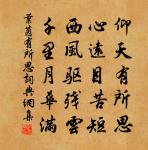 仰天有所思
心遠目苦短
西風驅殘雲
千里月華滿
葉茵有所思詞典網集